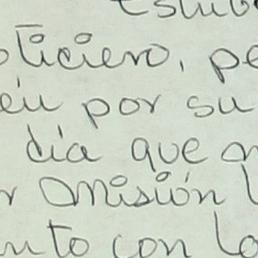 Estub
oticiero, pe
eu por su
dia que m
r Omisión l
nto con La